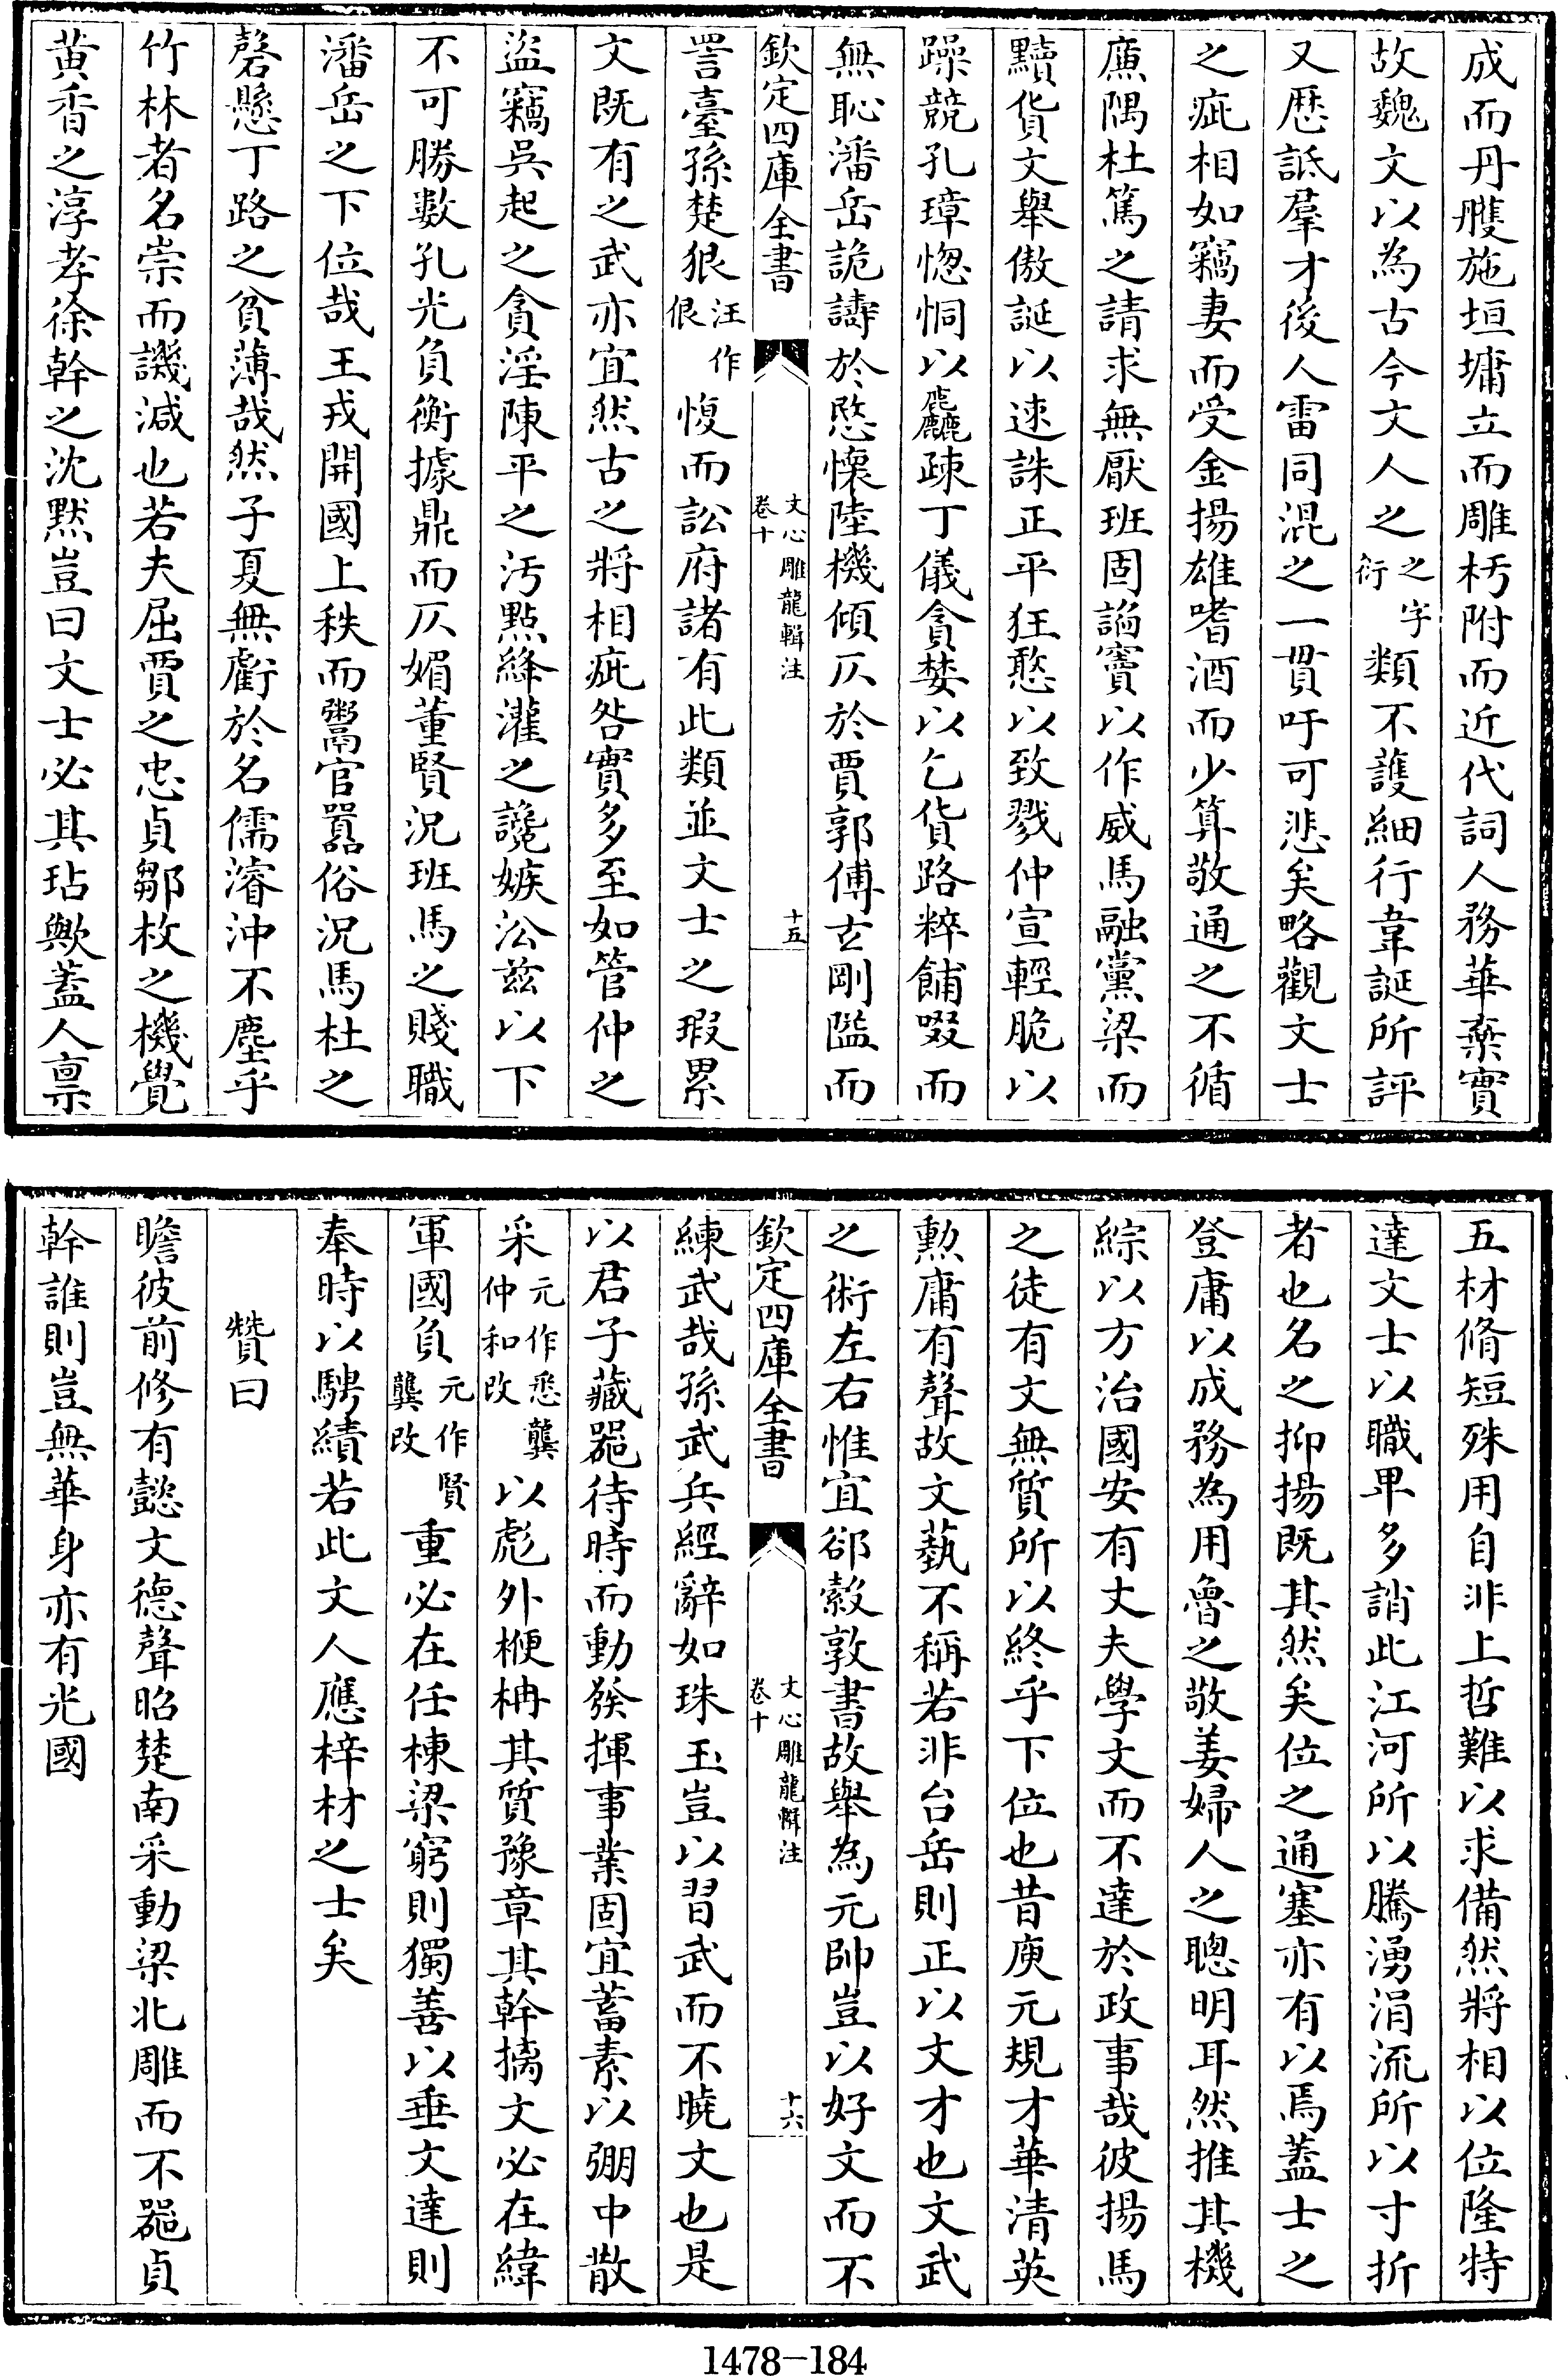 成而丹雘施垣墉立而雕杇附而近代詞人務華棄實
故魏文以為古今文人之之字衍類不護細行韋誕所評
又歴詆羣才後人雷同混之一貫吁可悲矣略觀文士
之疵相如竊妻而受金揚雄嗜酒而少算敬通之不循
廉隅杜篤之請求無厭班固諂竇以作威馬融黨梁而
黷貨文舉傲誕以速誅正平狂憨以致戮仲宣輕脆以
躁競孔璋惚恫以麤疎丁儀貪婪以乞貨路粹餔啜而
無恥潘岳詭譸於愍懷陸機傾仄於賈郭傅玄剛隘而
欽定四庫全書 文心雕龍輯注卷十 十五
詈臺孫楚狠汪作佷愎而訟府諸有此類並文士之瑕累
文既有之武亦宜然古之將相疵咎實多至如管仲之
盜竊吳起之貪淫陳平之汚點絳灌之讒嫉㳂兹以下
不可勝數孔光負衡據鼎而仄媚董賢況班馬之賤職
潘岳之下位哉王戎開國上秩而鬻官囂俗況馬杜之
磬懸丁路之貧薄哉然子夏無虧於名儒濬沖不塵乎
竹林者名崇而譏減也若夫屈賈之忠貞鄒枚之機覺
黄香之淳孝徐幹之沈默豈曰文士必其玷歟蓋人禀
五材脩短殊用自非上哲難以求備然將相以位隆特
達文士以職卑多誚此江河所以騰湧涓流所以寸折
者也名之抑揚既其然矣位之通塞亦有以焉蓋士之
登庸以成務為用魯之敬姜婦人之聰明耳然推其機
綜以方治國安有丈夫學文而不達於政事哉彼揚馬
之徒有文無質所以終乎下位也昔庾元規才華清英
勲庸有聲故文藝不稱若非台岳則正以文才也文武
之術左右惟宜郤縠敦書故舉為元帥豈以好文而不
欽定四庫全書 文心雕龍輯注卷十 十六
練武哉孫武兵經辭如珠玉豈以習武而不曉文也是
以君子藏器待時而動發揮事業固宜蓄素以弸中散
采元作悉龔仲和改以彪外楩柟其質豫章其幹摛文必在緯
軍國負元作賢龔改重必在任棟梁窮則獨善以垂文達則
奉時以騁績若此文人應梓材之士矣
贊曰
瞻彼前修有懿文德聲昭楚南采動梁北雕而不器貞
幹誰則豈無華身亦有光國
1478-184